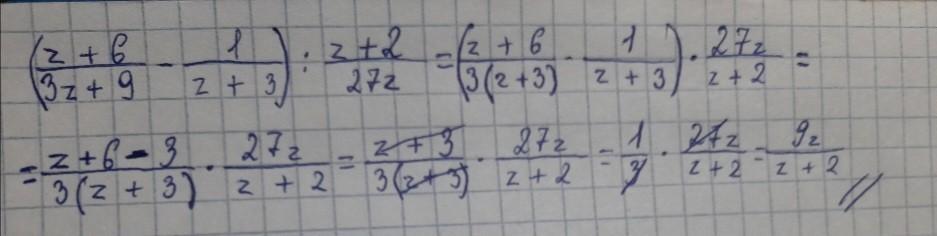 ((z + 6)/(3z + 9) - 1/(z + 3)) : (z + 2)/(27z) = ((z + 6)/(3(z+3)) - 1/(z + 3)) · 27z/(z + 2) =
= (z + 6 - 3)/(3(z + 3)) · 27z/(z + 2) = (z + 3)/(3(z+3)) · 27z/(z + 2) = 1/3 · 27z/(z + 2) = 9z/(z + 2) //